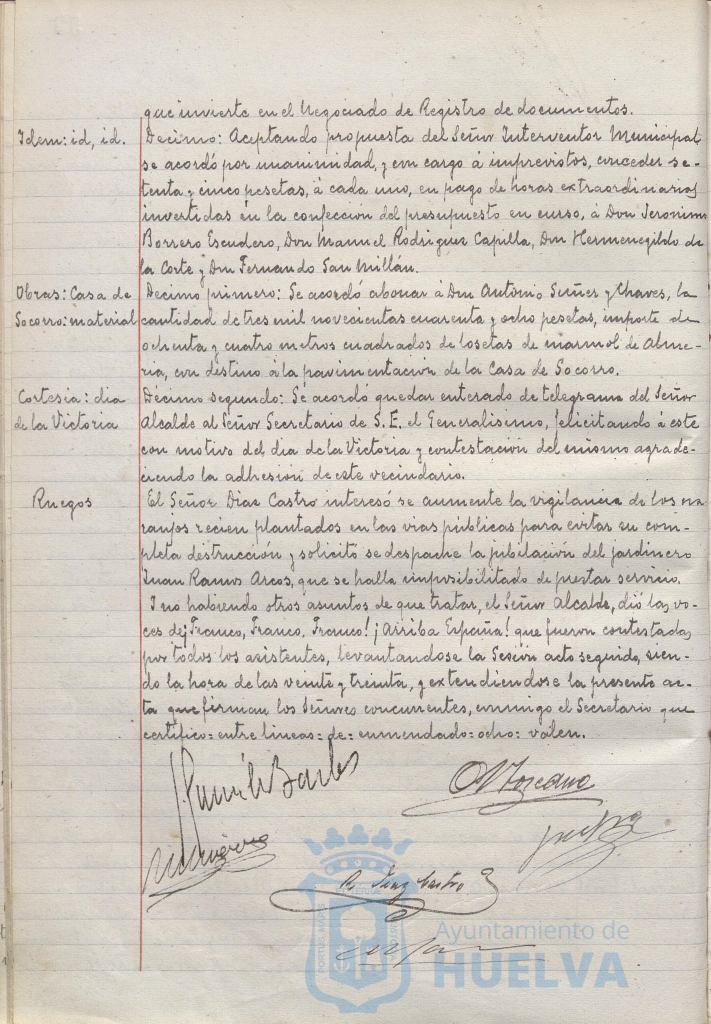 que invierte en el Negociado de Registro de documentos.
Idem: id, id.
Decimo: Aceptando propuesta del Señor Interventor Municipal
se acordó por unanimidad, y con cargo á imprevistos, conceder se-
tenta y cinco pesetas, á cada uno, en pago de horas extraordinarias
invertidas en la confección del presupuesto en curso, á Don Jeronimo
Borrero Escudero, Don Manuel Rodriguez Capilla, Don Hermenegildo de
la Corte y Don Fernando San Millán.
Obras: Casa de
Socorro: material
Decimo primero: Se acordó abonar á Don Antonio Señer y Chaves, la
cantidad de tres mil novecientas cuarenta y ocho pesetas, importe de
ochenta y cuatro metros cuadrados de losetas de marmol de Alme-
ria, con destino á la pavimentación de la Casa de Socorro.
Cortesia: dia
de la Victoria
Decimo segundo: Se acordó quedar enterado de telegrama del Señor
Alcalde al Señor Secretario de S. E. el Generalisimo, felicitando á este
con motivo del dia de la Victoria y contestación del mismo agrade-
ciendo la adhesión de este vecindario.
Ruegos
El Señor Diaz Castro interesó se aumente la vigilancia de los na
ranjos recien plantados en las vias públicas para evitar su com-
pleta destrucción y solicitó se despache la jubilación del jardinero
Juan Ramos Arcos, que se halla imposibilitado de prestar servicio.
Y no habiendo otros asuntos de que tratar, el Señor Alcalde, dió las vo-
ces de ¡Franco, Franco, Franco! ¡Arriba España! que fueron contestadas
por todos los asistentes, levantandose la Sesión acto seguido, sien-
do la hora de las veinte y treinta, y extendiendose la presente ac-
ta que firman los Señores concurrentes, conmigo el Secretario que
certifico = entre lineas = de = enmendado = ocho = valen.
R Diaz Castro
Ayuntamiento de
HUELVA